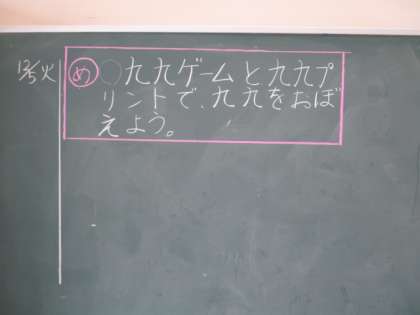 12/5 火
め 九九ゲームと九九プ
リントで、九九をおぼ
えよう。